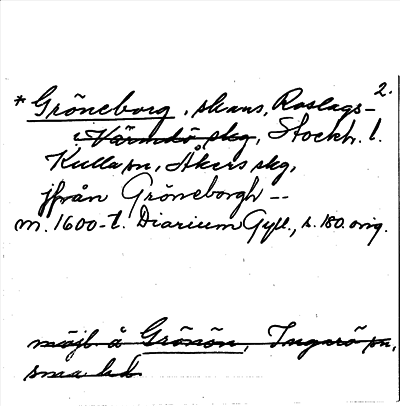 2.
* Gröneborg, skans, Roslags-
i Värmdö skg, Stockh. l.
Kulla sn, Åkers skg,
ifrån Gröneborgh --
m. 1600-t. Diarium Gyll., s. 180. orig.
möjl å Grönön, Ingarö sn,
sma hd